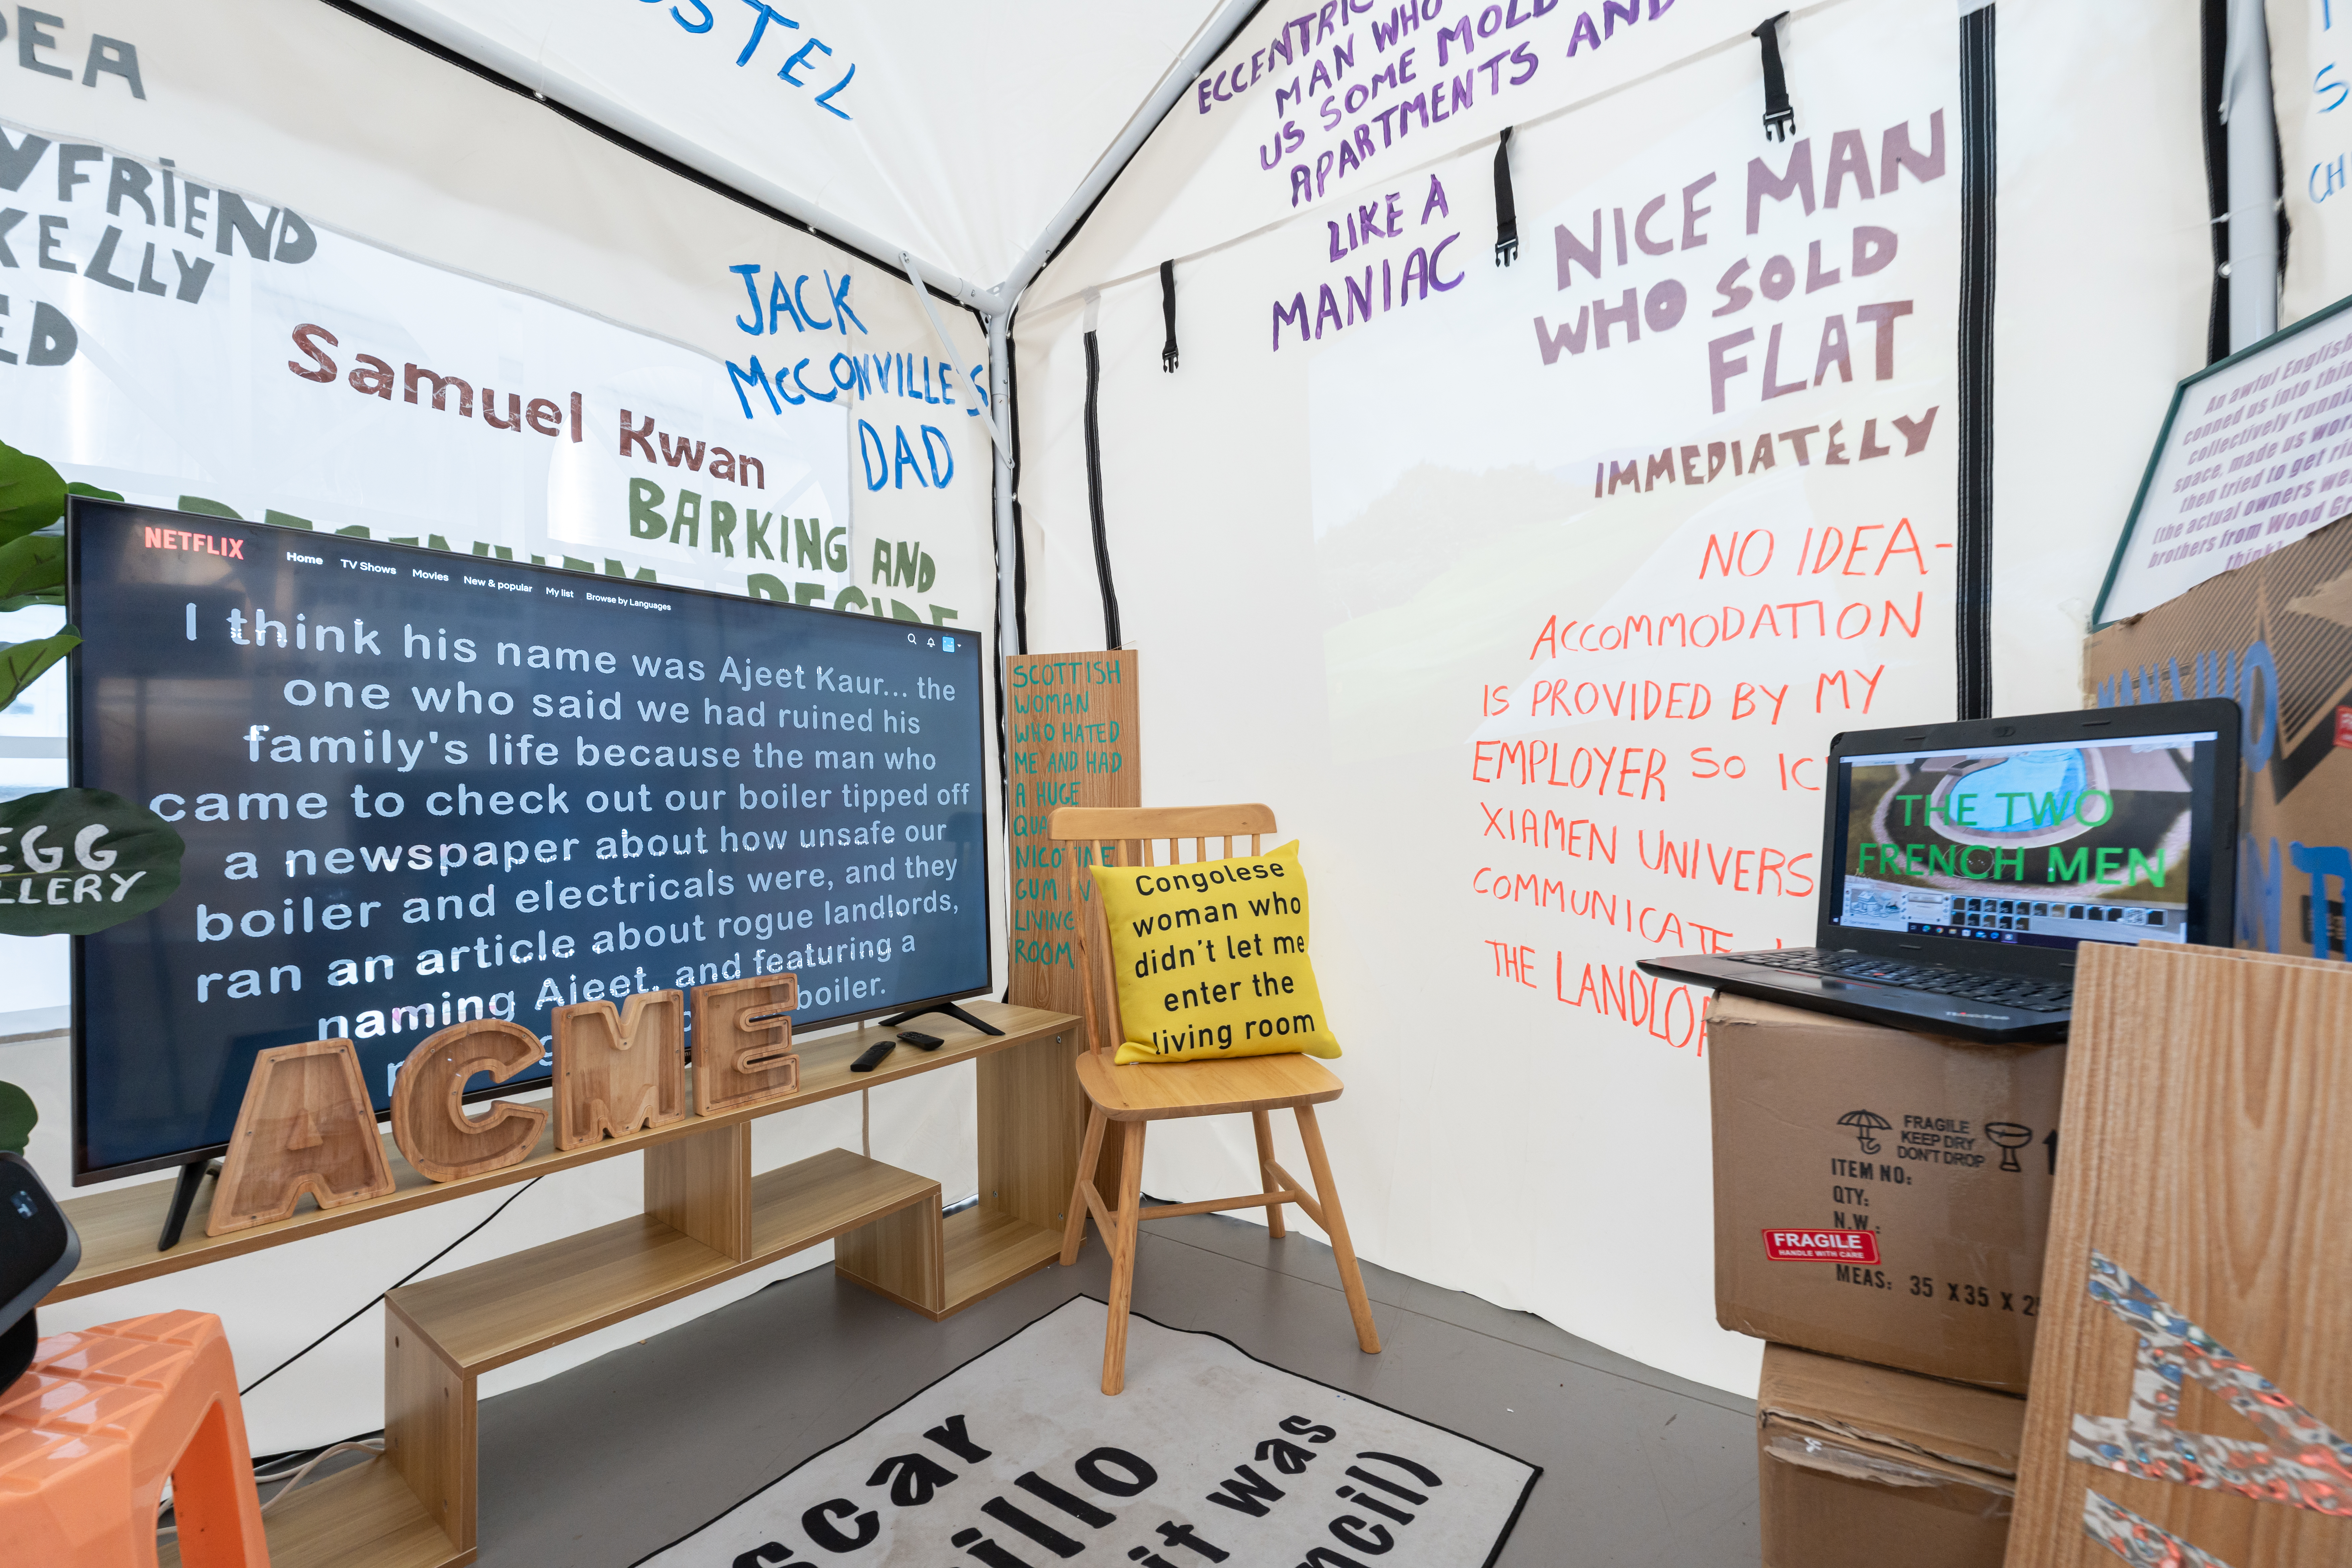 OSTEL
DEA
YFRIEND
KELLY
ED
Samuel Kwan
JACK
McCONVILLE'S
DAD
BARKING AND
ECCENTRIC
MAN WHO
US SOME MOLD
APARTMENTS AND
LIKE A
MANIAC
NICE MAN
WHO SOLD
FLAT
IMMEDIATELY
NO IDEA-
ACCOMMODATION
IS PROVIDED BY MY
EMPLOYER SO IC
XIAMEN UNIVERS
COMMUNICATE
THE LANDLOR
An awful English
conned us into thin
collectively runnin
space, made us wor
then tried to get ri
(the actual owners we
brothers from Wood Gr
think)
NETFLIX
Home TV Shows Movies New & popular My list Browse by Languages
I think his name was Ajeet Kaur... the
one who said we had ruined his
family's life because the man who
came to check out our boiler tipped off
a newspaper about how unsafe our
boiler and electricals were, and they
ran an article about rogue landlords,
naming Ajeet, and featuring a
boiler.
ACME
EGG
LLERY
SCOTTISH
WOMAN
WHO HATED
ME AND HAD
A HUGE
QUA
NICOTINE
GUM IN
LIVING
ROOM
Congolese
woman who
didn't let me
enter the
living room
THE TWO
FRENCH MEN
FRAGILE
KEEP DRY
DON'T DROP
ITEM NO:
QTY:
N.W :
FRAGILE
HANDLE WITH CARE
MEAS: 35 X 35 X 2
scar
illo
it was
ncil)